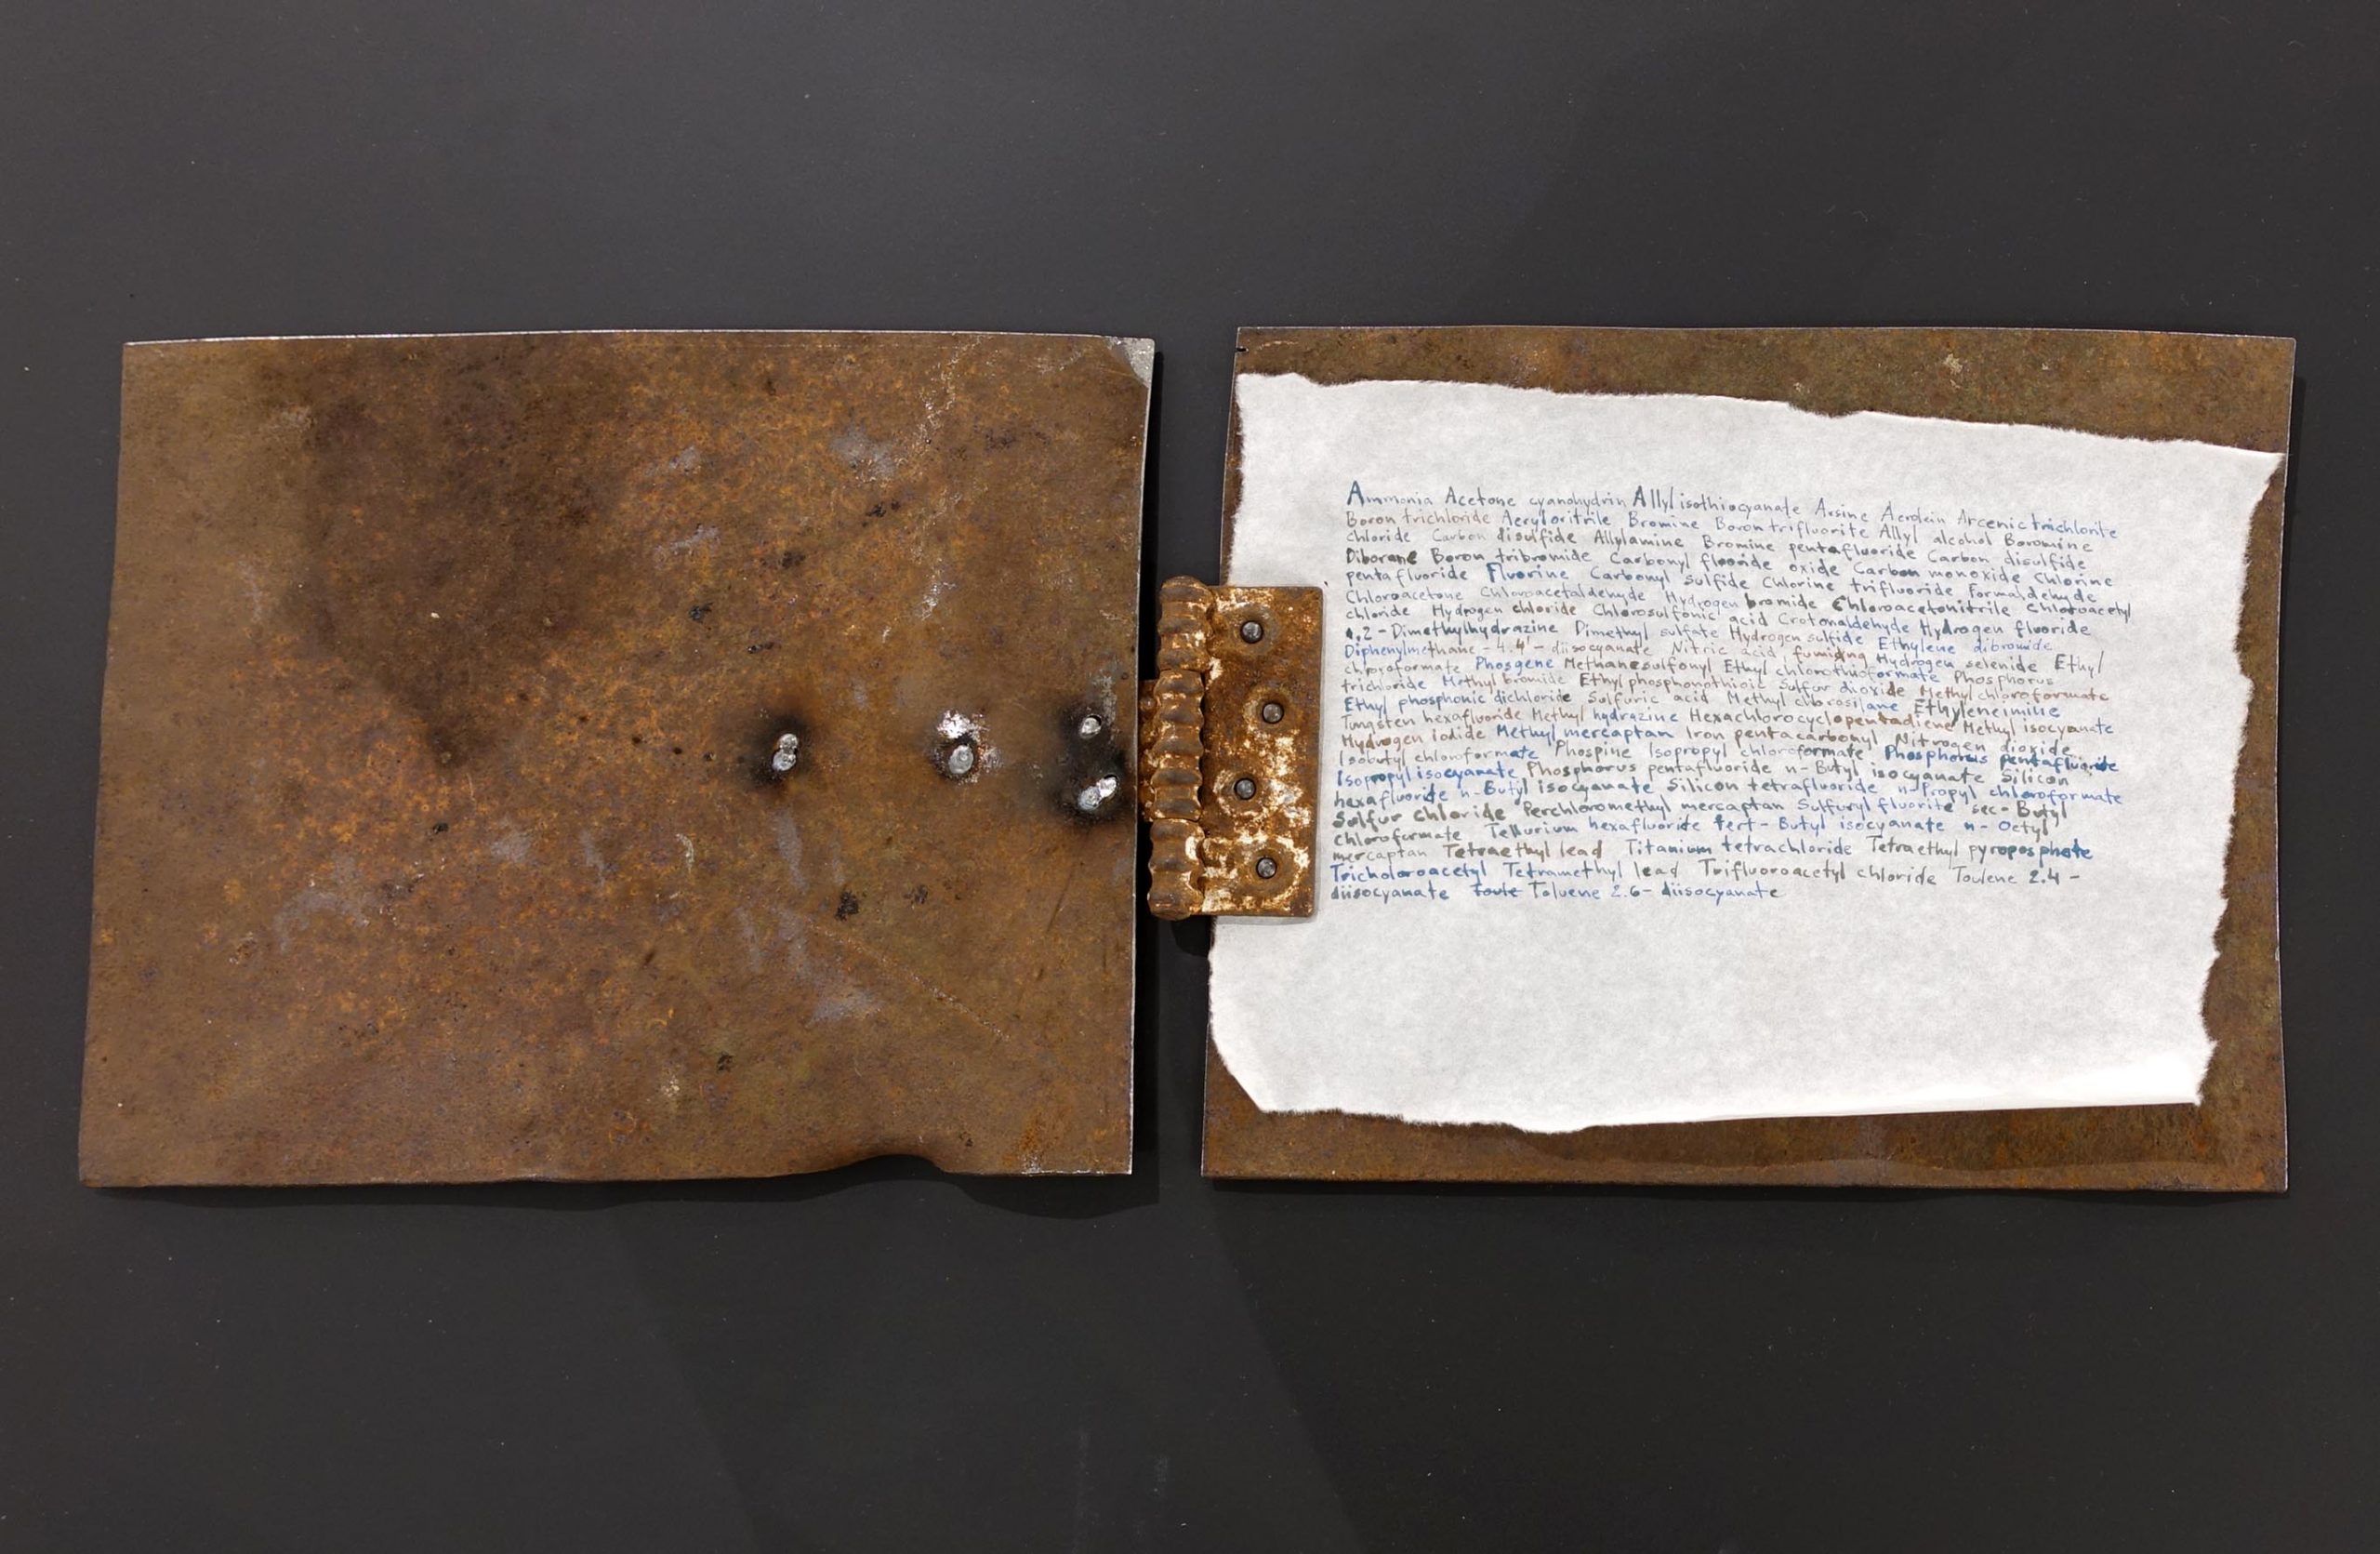 Ammonia Acetone cyanohydrin Allyl isothiocyanate Arsine Acrolein Arcenic trichlorite
Boron trichloride Aeryloritrile Bromine Boron trifluorite Allyl alcohol Boromine
chloride Carbon disulfide Allylamine Bromine pentafluoride Carbon disulfide
Diborane Boron tribromide Carbonyl fluoride oxide Carbon monoxide Chlorine
pentafluoride Fluorine Carbonyl sulfide Chlorine trifluoride Formaldehyde
Chloroacetone Chloroacetaldehyde Hydrogen bromide Chloroacetonitrile Chloroacetyl
chloride Hydrogen chloride Chlorosulfonic acid Crotonaldehyde Hydrogen fluoride
1,2-Dimethylhydrazine Dimethyl sulfate Hydrogen sulfide Ethylene dibromide
Diphenylmethane-4.4'-diisocyanate Nitric acid, fuming Hydrogen selenide Ethyl
chloroformate Phosgene Methanesulfonyl Ethyl chlorothioformate Phosphorus
trichloride Methyl bromide Ethyl phosphonothioic Sulfur dioxide Methyl chloroformate
Ethyl phosphonic dichloride Sulfuric acid Methyl chlorosilane Ethyleneimine
Tungsten hexafluoride Methyl hydrazine Hexachlorocyclopentadiene Methyl isocyanate
Hydrogen iodide Methyl mercaptan Iron pentacarbonyl Nitrogen dioxide
Isobutyl chloroformate Phospine Isopropyl chloroformate Phosphorus pentafluoride
Isopropyl isocyanate Phosphorus pentafluoride n-Butyl isocyanate Silicon
hexafluoride n-Butyl isocyanate Silicon tetrafluoride n-Propyl chloroformate
Sulfur chloride Perchloromethyl mercaptan Sulfuryl fluorite sec-Butyl
chloroformate Tellurium hexafluoride tert-Butyl isocyanate n-Octyl
mercaptan Tetraethyl lead Titanium tetrachloride Tetraethyl pyroposphate
Tricholoroacetyl Tetramethyl lead Trifluoroacetyl chloride Toulene 2.4-
diisocyanate Toule Toluene 2.6-diisocyanate